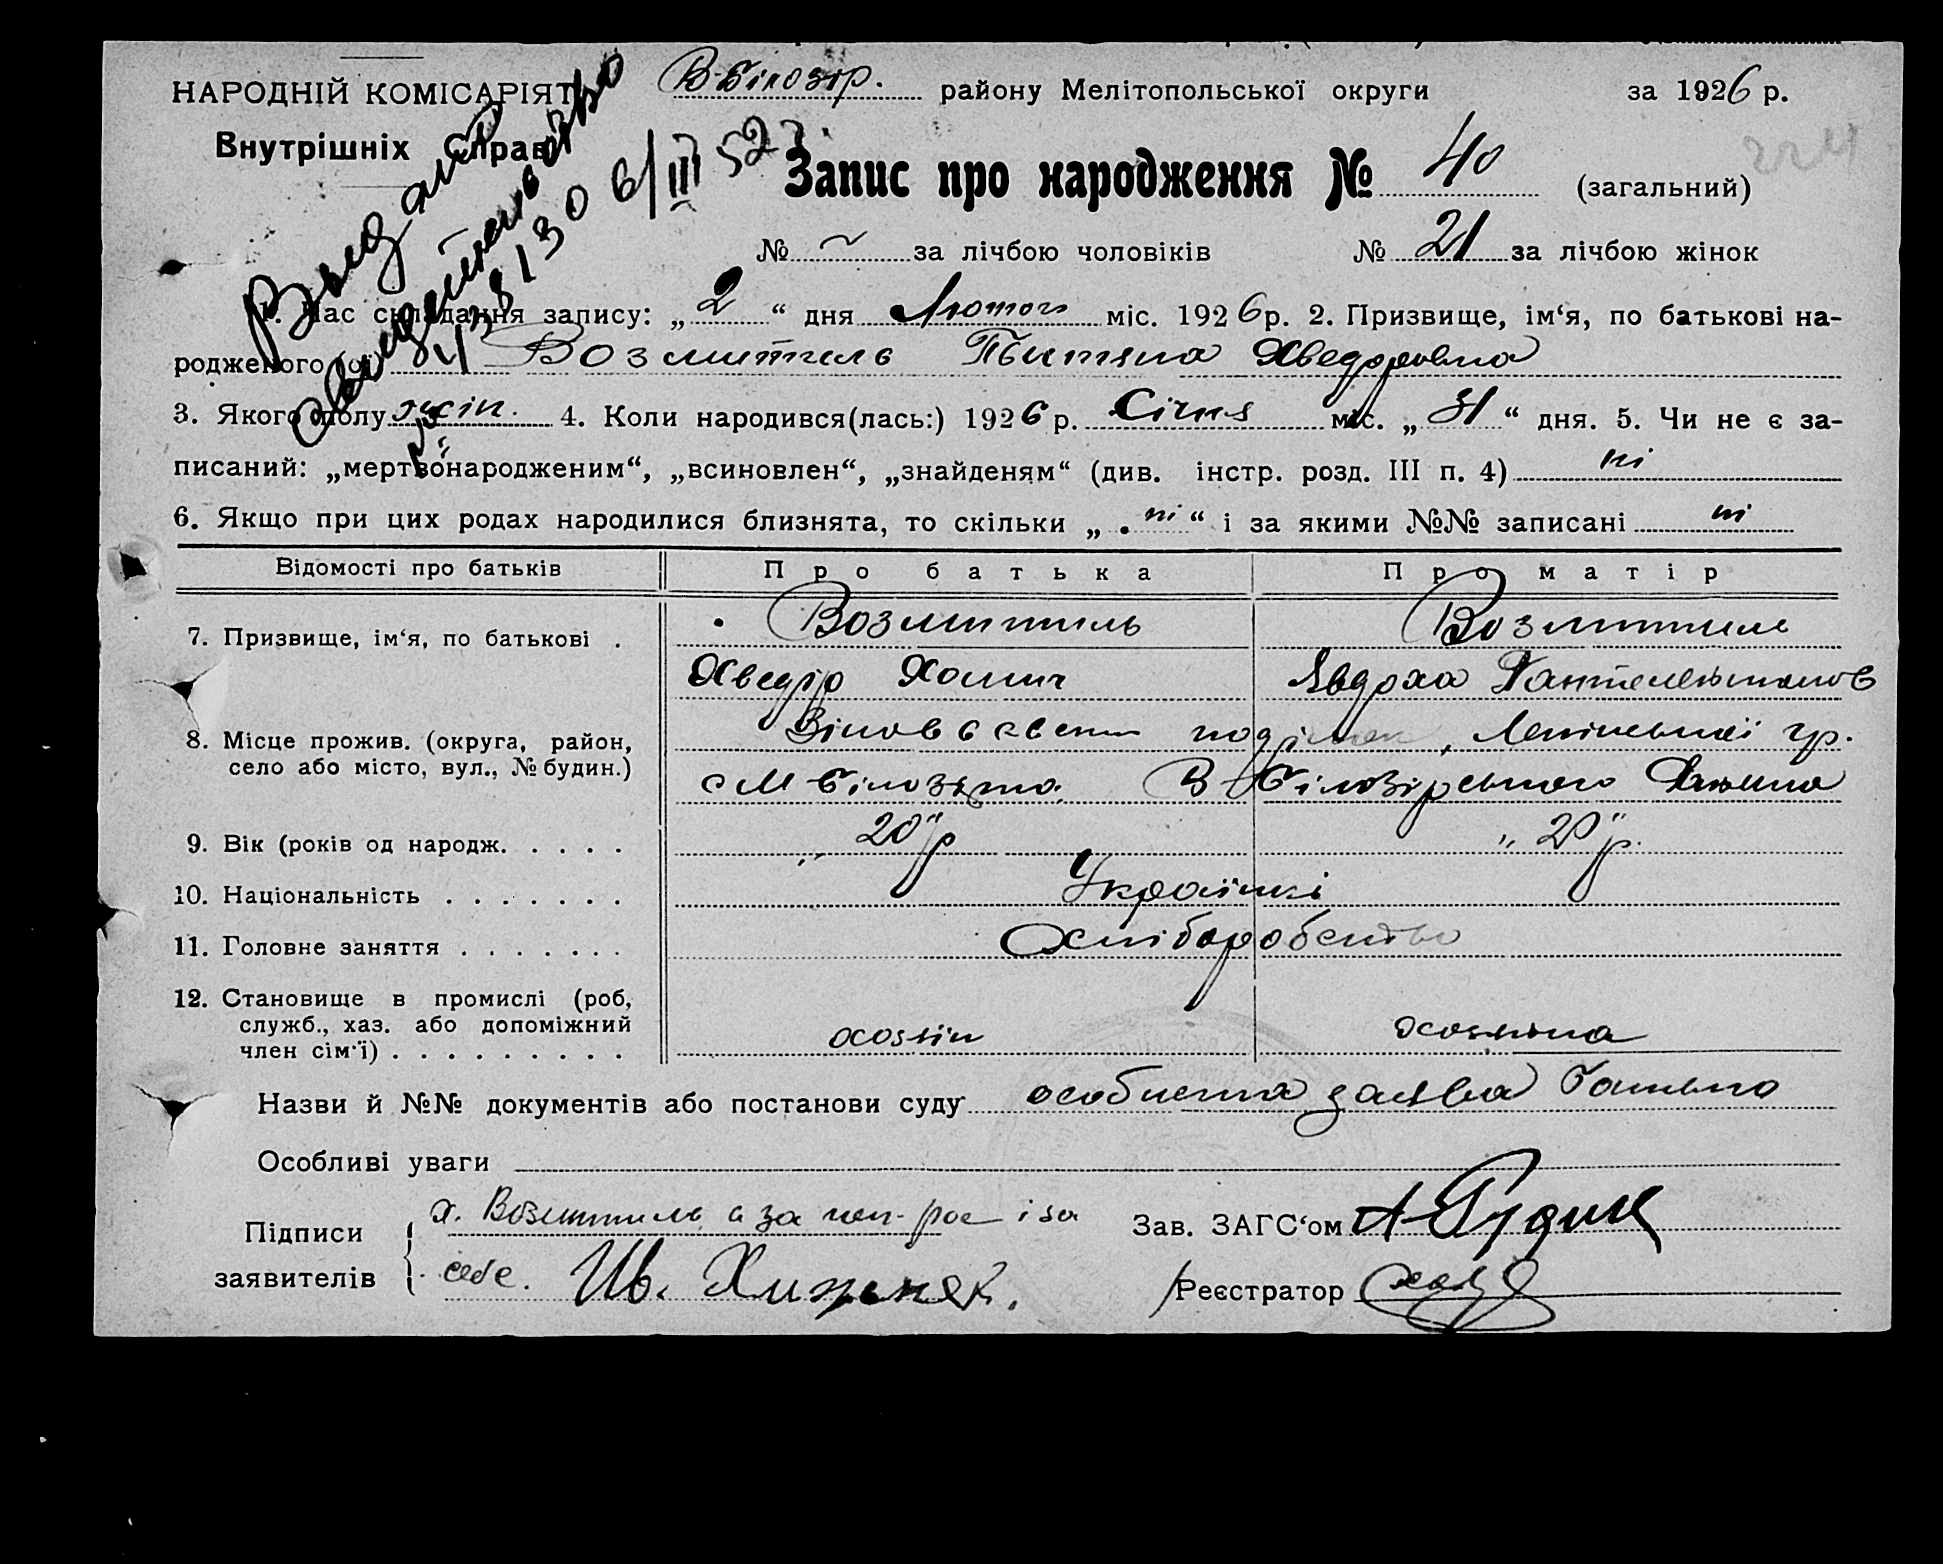 НАРОДНІЙ КОМІСАРІЯТ В-Білозір. району Мелітопольської округи за 1926 р.
Внутрішніх Справ
Запис про народження № 40 (загальний)
224
№ ~ за лічбою чоловіків № 21 за лічбою жінок
1. Час складання запису: „2“ дня Лютого міс. 1926 р. 2. Призвище, ім‘я, по батькові на-
родженого Возмитель Тытяна Хведоровна
3. Якого полу жін. 4. Коли народився(лась:) 1926 р. Січня міс. „31“ дня. 5. Чи не є за-
писаний: „мертвонародженим“, „всиновлен“, „знайденям“ (див. інстр. розд. III п. 4) ні
6. Якщо при цих родах народилися близнята, то скільки „ ні “ і за якими №№ записані ні
Выдано
свидетельство
№ 438130 6/III 52 г.
Відомості про батьків Про батька Про матір
7. Призвище, ім‘я, по батькові . Возмитель Возмитель
Хведір Хомич Явдоха
8. Місце прожив. (округа, район, Ленінської гр.
село або місто, вул., № будин.) с М Білозірка В-Білозірського
9. Вік (років од народж. . . . . „20“ р „20“ р.
10. Національність . . . . . . . Українці
11. Головне заняття . . . . . . . Хліборобство
12. Становище в промислі (роб,
служб., хаз. або допоміжний
член сім'ї) . . . . . . . . . хозяїн хозяйка
Назви й №№ документів або постанови суду особиста заява батька
Особливі уваги
Підписи х. Возмитель а за неп- рос і за Зав. ЗАГС‘ом А Рудик
заявителів себе. Ив. Хижняк. Реєстратор